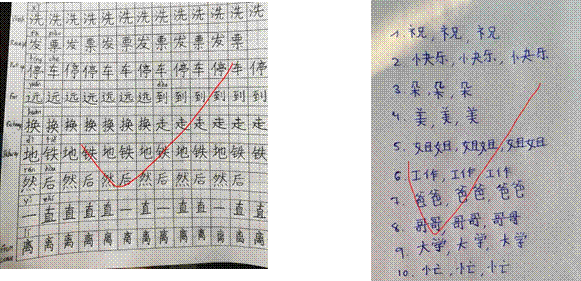 洗洗洗洗洗洗洗洗洗洗洗洗
发票发票发票发票发票
停车停停车车停车停停车停
远远远远远远远到到到到到
换换换换换换换走走走走走
地铁地铁地铁地铁地铁地铁
然后然后然后然后然后然
一直直一直一直直一直直
离离离离离离离离离离离
1. 祝, 祝, 祝
2. 快乐, 快乐, 快乐
3. 朵, 朵, 朵
4. 美, 美, 美
5. 姐姐, 姐姐, 姐姐
6. 工作, 工作, 工作
7. 爸爸, 爸爸, 爸爸
8. 哥哥, 哥哥, 哥哥
9. 大学, 大学, 大学
10. 忙, 忙, 忙